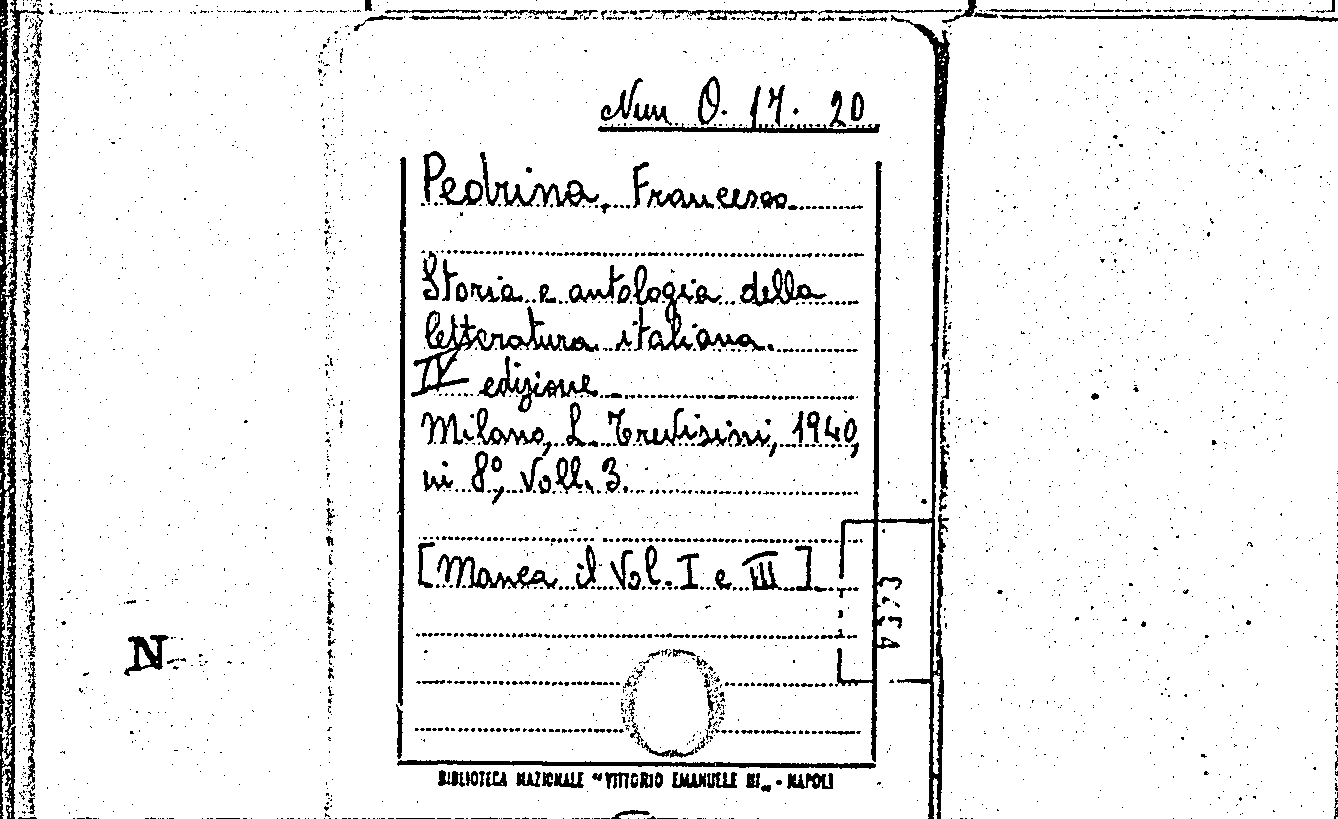 Nuu O. 17. 20
Pedrina, Francesco.
Storia e antologia della
letteratura italiana.
IV edizione
Milano, L. Trevisini, 1940,
in 8°, Voll. 3.
[Manca il Vol. I e III]
N
BIBLIOTECA NAZIONALE "VITTORIO EMANUELE III„ - NAPOLI